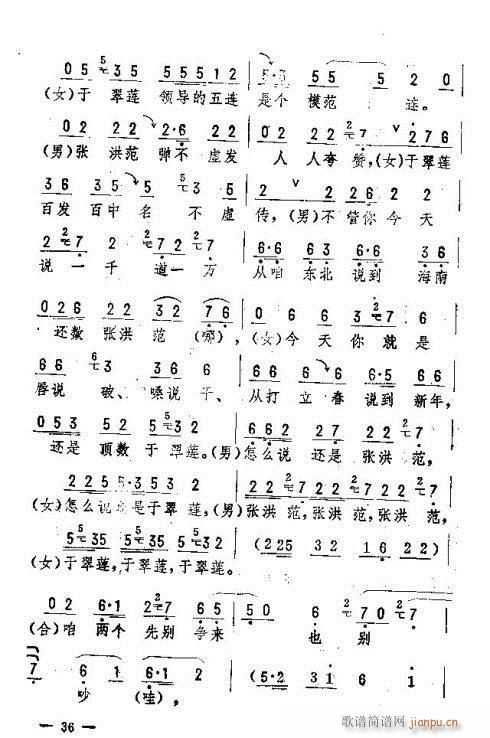 05 35 55512 5·3 55 5 20
(女)于 翠莲 领导的五连 是个 模范 连。
02 22 2·6 22 022 227 276
(男)张 洪范 弹不 虚发 人 人夸 赞,(女)于翠莲
36 36 5 53 5 2 2 226 22
百发 百中 名 不 虚 传,(男)不 管你 今天
227 272 27 6·6 63 6·6 36
说一 千 道一 万 从咱 东北 说到 海南
026 22 32 (76) 02 66 3 276
还数 张洪 范(哪), (女)今天 你 就 是
66 63 36 6 66 66 6·5 66
唇说 破、嗓说 干、 从打 立春 说到 新年,
053 52 532 662 22 22 27
还是 顶数 于翠莲。(男)怎么说 还是 张洪 范,
22 5 5·3532 22227 22227 2227
(女)怎么说 还是于翠莲,(男)张洪 范,张洪 范,张洪 范,
535 535 532 (225 32 16 22)
(女)于翠莲,于翠莲,于翠莲。
02 6·1 227 65 50 270 27
(合)咱 两个 先别 争来 也 别
7 6 1 6·1 (5·2 31 6·1 22)
吵 (哇),
— 36 —
歌谱简谱网
jianpu.cn